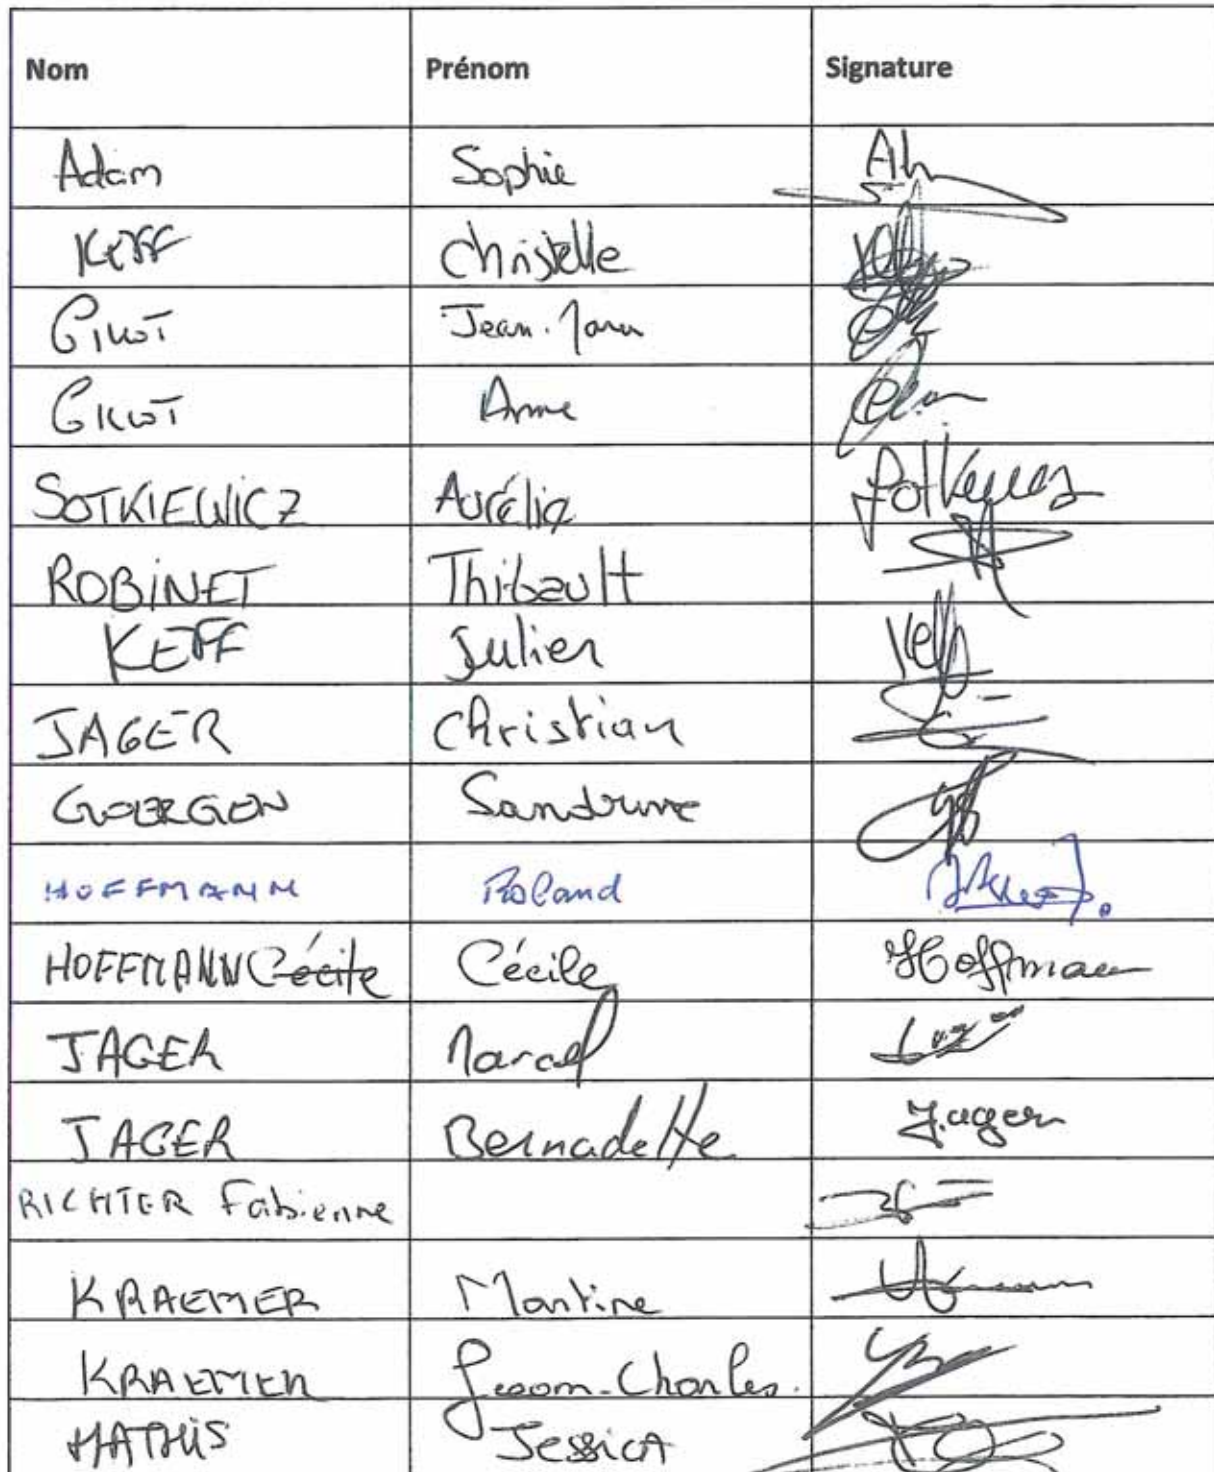 Nom Prénom Signature
Adam Sophie
KEFF Christelle
Jean-Marc
Anne
SOTKIEWICZ Aurélia
ROBINET Thibault
KEFF Julien Keff
JAGER Christian
GOERGEN Sandrine
HOFFMANN Roland
HOFFMANN Cécile Cécile Hoffmann
JAGER Marcel
JAGER Bernadette Jager
RICHTER Fabienne
KRAEMER Martine
KRAEMER Jean-Charles
MATHIS JessicA